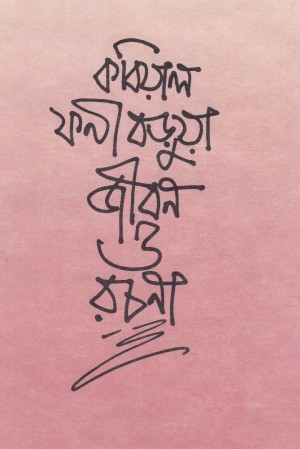 কবিয়াল
ফনী বড়ুয়া
জীবন
ও
রচনা